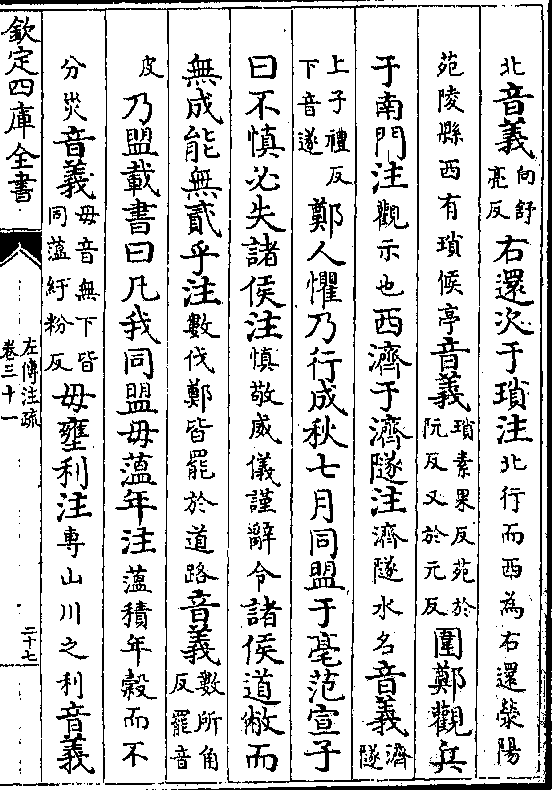 北音義向舒亮反右還次于瑣注北行而西為右還滎陽
苑陵縣西有瑣候亭音義瑣素果反苑於阮反又於元反圍鄭觀兵
于南門注觀示也西濟于濟隧注濟隧水名音義濟隧
上子禮反下音遂鄭人懼乃行成秋七月同盟于亳范宣子
曰不慎必失諸侯注慎敬威儀謹辭令諸侯道敝而
無成能無貳乎注數伐鄭皆罷於道路音義數所角反罷音
皮乃盟載書曰凡我同盟毋薀年注薀積年穀而不
分災音義毋音無下皆同薀紆粉反毋壅利注專山川之利音義
欽定四庫全書
左傳注疏
卷三十一
二十七